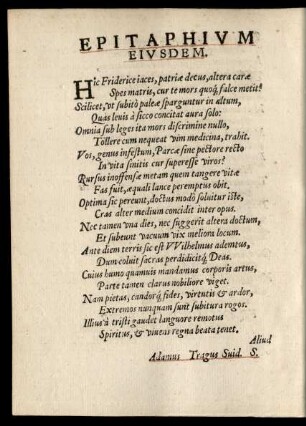 EPITAPHIVM
EIVSDEM.
Hic Friderice iaces, patriæ decus, altera caræ
Spes matris, cur te mors quoq; falce metit?
Scilicet, vt subitò paleæ sparguntur in altum,
Quas leuis à sicco concitat aura solo:
Omnia sub leges ita mors discrimine nullo,
Tollere cum nequeat vim medicina, trahit.
Vos, genus infestum, Parcæ sine pectore recto
In vita sinitis cur superesse viros?
Rursus inoffensæ metam quem tangere vitæ
Fas fuit, æquali lance peremptus obit.
Optima sic pereunt, doctus modò soluitur iste,
Cras alter medium concidit inter opus.
Nec tamen vna dies, nec suggerit altera doctum,
Et subeunt vacuum vix meliora locum.
Ante diem terris sic est VVilhelmus ademtus,
Dum coluit sacras perdidicitq; Deas.
Cuius humo quamuis mandamus corporis artus,
Parte tamen clarus nobiliore viget.
Nam pietas, candorq; fides, virtutis & ardor,
Extremos nunquam sunt subitura rogos.
Illius à tristi gaudet languore remotus
Spiritus, & viuens regna beata tenet.
Aliud
Adamus Tragus Suid. S.